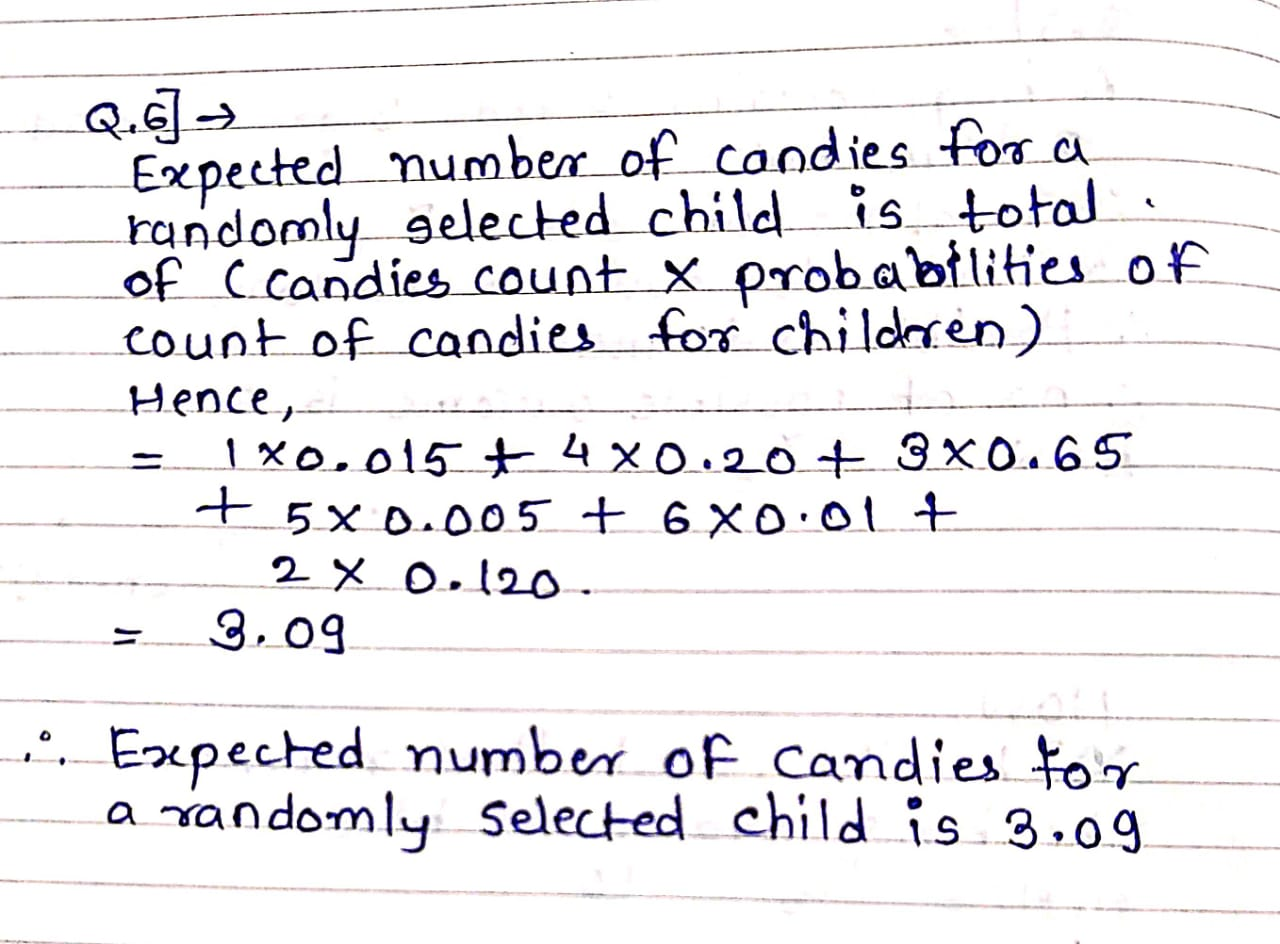 Q.6] →
Expected number of candies for a
randomly selected child is total
of (candies count × probabilities of
count of candies for children)
Hence,
= 1×0.015 + 4×0.20 + 3×0.65
+ 5×0.005 + 6×0.01 +
2 × 0.120.
= 3.09
∴ Expected number of candies for
a randomly selected child is 3.09